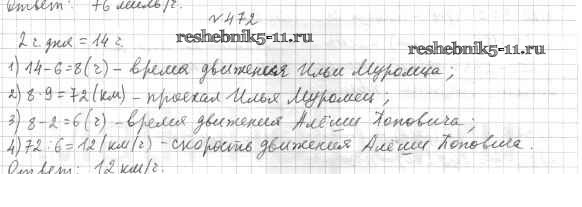 Ответ: 76 миль/ч.
№472
2 ч. дня = 14 ч.
reshebnik5-11.ru
reshebnik5-11.ru
1) 14-6=8(ч) - время движения Ильи Муромца;
2) 8·9=72(км) - проехал Илья Муромец;
3) 8-2=6(ч) - время движения Алёши Поповича;
4) 72:6=12(км/ч) - скорость движения Алёши Поповича.
Ответ: 12 км/ч.